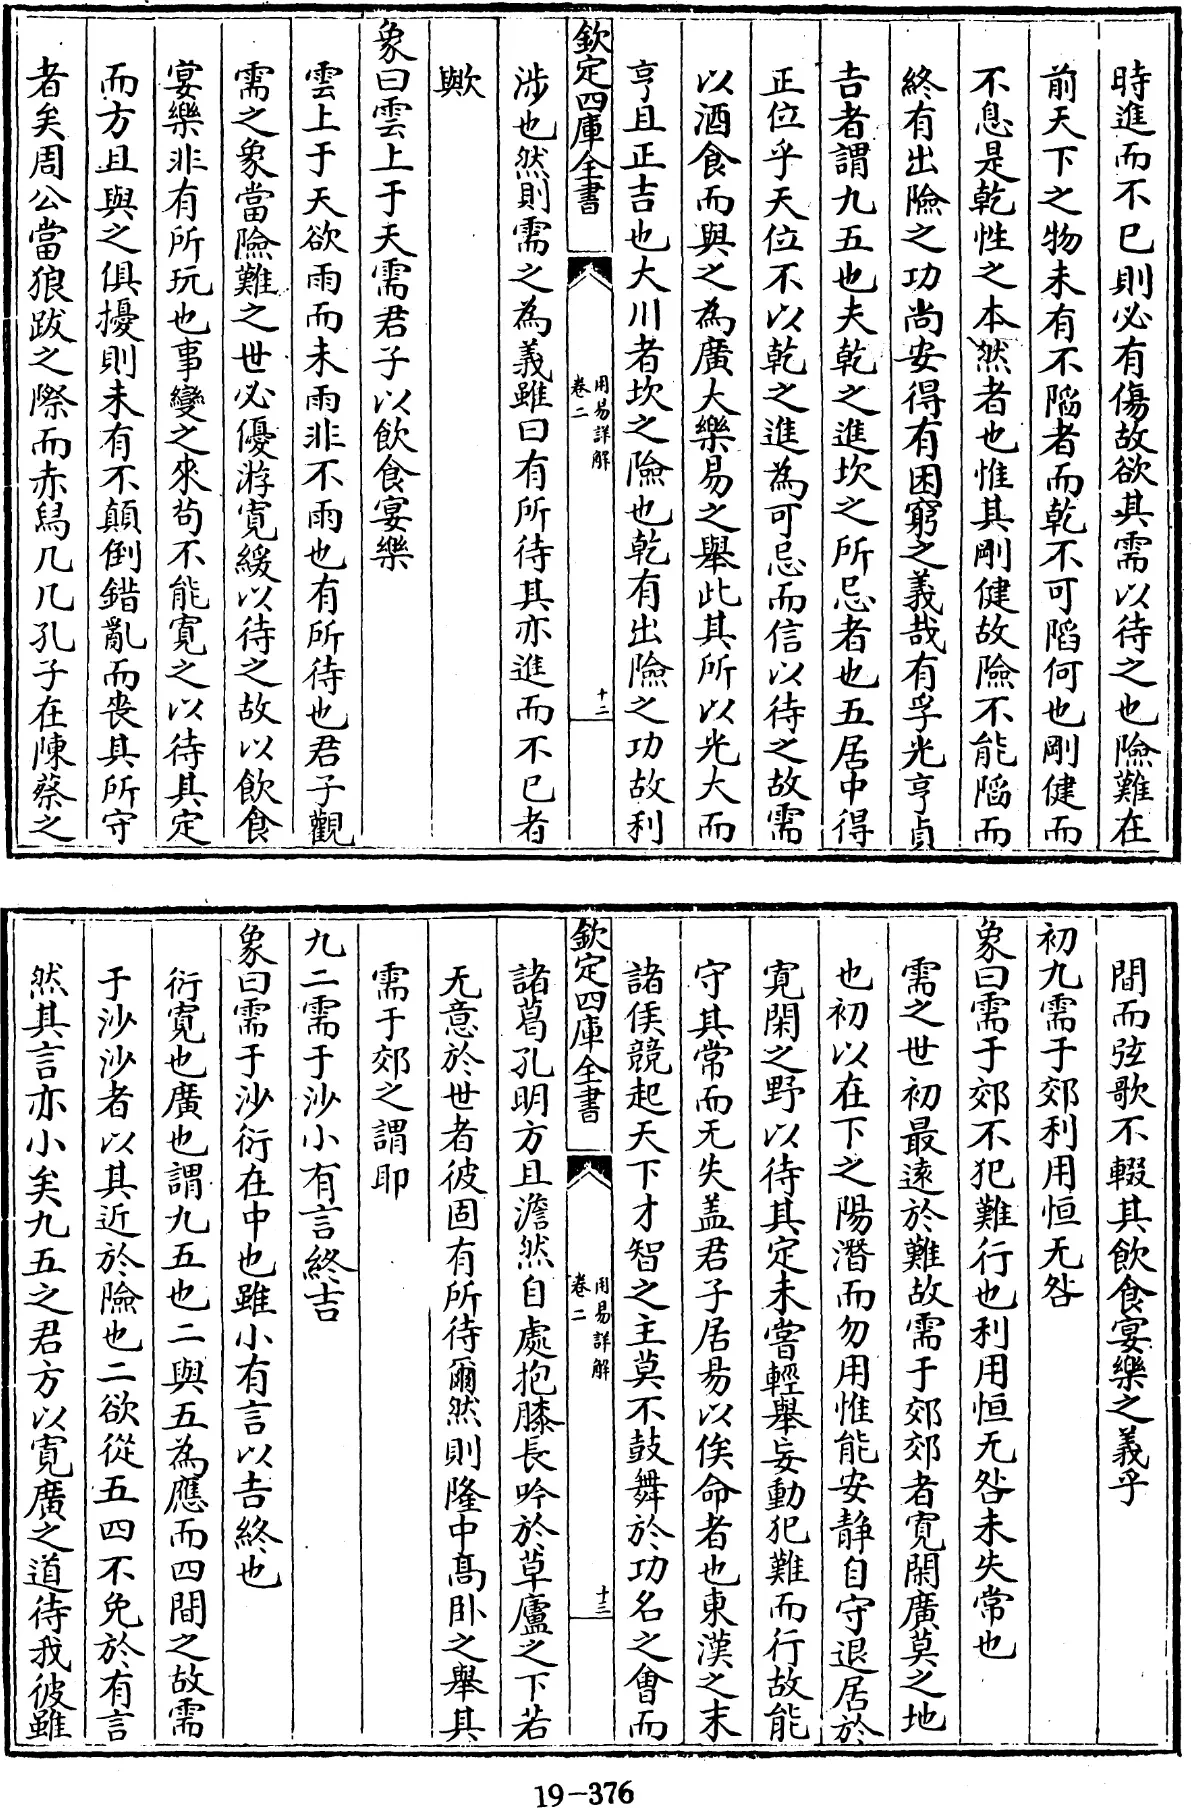 時進而不已則必有傷故欲其需以待之也險難在
前天下之物未有不陷者而乾不可陷何也剛健而
不息是乾性之本然者也惟其剛健故險不能陷而
終有出險之功尚安得有困窮之義哉有孚光亨貞
吉者謂九五也夫乾之進坎之所忌者也五居中得
正位乎天位不以乾之進為可忌而信以待之故需
以酒食而與之為廣大樂易之舉此其所以光大而
亨且正吉也大川者坎之險也乾有出險之功故利
欽定四庫全書
周易詳解
卷二
十二
涉也然則需之為義雖曰有所待其亦進而不已者
歟
象曰雲上于天需君子以飲食宴樂
雲上于天欲雨而未雨非不雨也有所待也君子觀
需之象當險難之世必優游寛緩以待之故以飲食
宴樂非有所玩也事變之來茍不能寛之以待其定
而方且與之俱擾則未有不顛倒錯亂而喪其所守
者矣周公當狼跋之際而赤舄几几孔子在陳蔡之
間而弦歌不輟其飲食宴樂之義乎
初九需于郊利用恒无咎
象曰需于郊不犯難行也利用恒无咎未失常也
需之世初最遠於難故需于郊郊者寛閑廣莫之地
也初以在下之陽潛而勿用惟能安静自守退居於
寛閑之野以待其定未嘗輕舉妄動犯難而行故能
守其常而无失盖君子居易以俟命者也東漢之末
諸侯競起天下才智之主莫不鼓舞於功名之會而
欽定四庫全書
周易詳解
卷二
十三
諸葛孔明方且澹然自處抱膝長吟於草廬之下若
无意於世者彼固有所待爾然則隆中髙卧之舉其
需于郊之謂耶
九二需于沙小有言終吉
象曰需于沙衍在中也雖小有言以吉終也
衍寛也廣也謂九五也二與五為應而四間之故需
于沙沙者以其近於險也二欲從五四不免於有言
然其言亦小矣九五之君方以寛廣之道待我彼雖
19-376